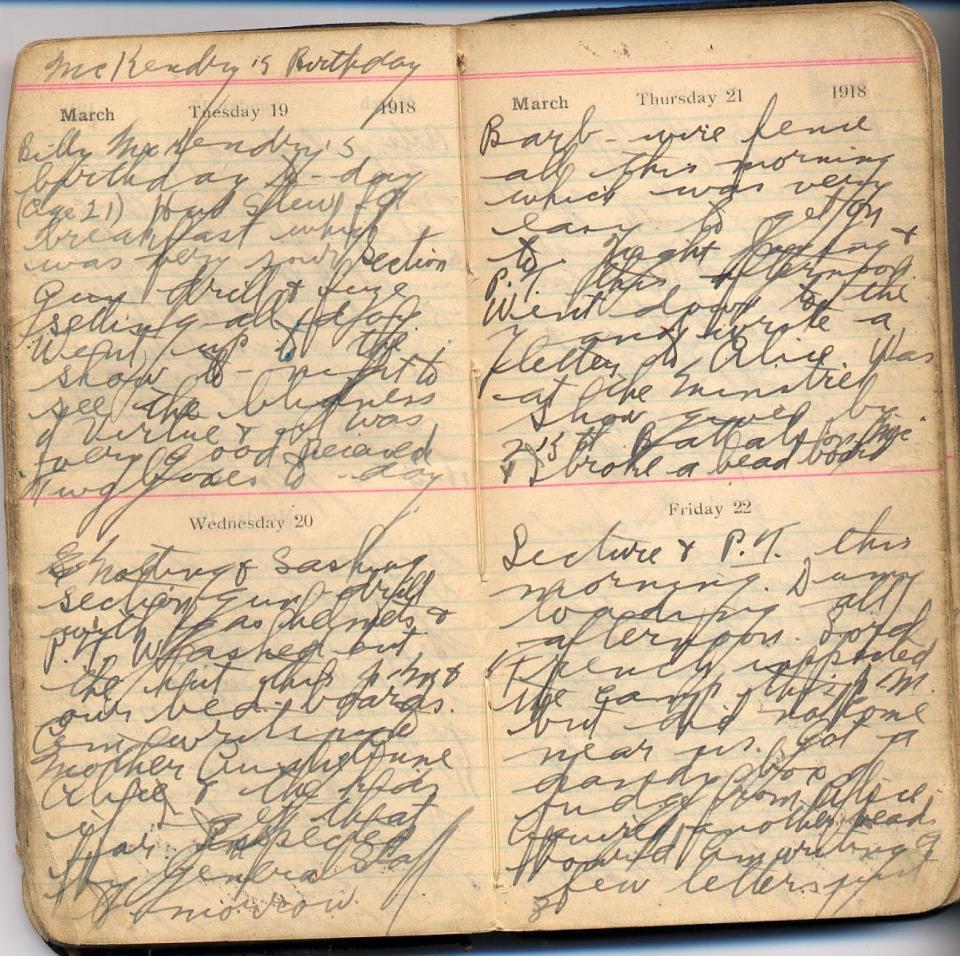 McKendry's Birthday
March Tuesday 19 1918
Billy McKendry's
birthday to-day
(age 21) Had Stew for
breakfast which
was very sour Section
Gun drill & fuze
setting all day
Went up to the
show to-night to
see the blidness
of Virtue & it was
very good Recieved
two boxes to-day
Wednesday 20
Knotting & Lashing
section gun drill
with gas helmets &
P.T. Washed out
the hut this P.M &
our bed boards.
Am writing
Mother Auntie June
Alice & the kids
if I get that
far. Inspected
by General Staff
tomorrow.
March Thursday 21 1918
Barb-wire fence
all this morning
which was very
easy to get on
to. Laying &
P.T. this afternoon.
Went down to the
Y and wrote a
letter to Alice. Was
at the Minstrel
Show given by
th Battalion. Mc
& I broke a bead board
Friday 22
Lecture & P.T. this
morning. Dumy
loading all
afternoon. Lord
French inspected
the camp this P.M.
but did not come
near us. Got a
dandy box of
fudge from Alice.
another bead
board Am writing a
few letters just